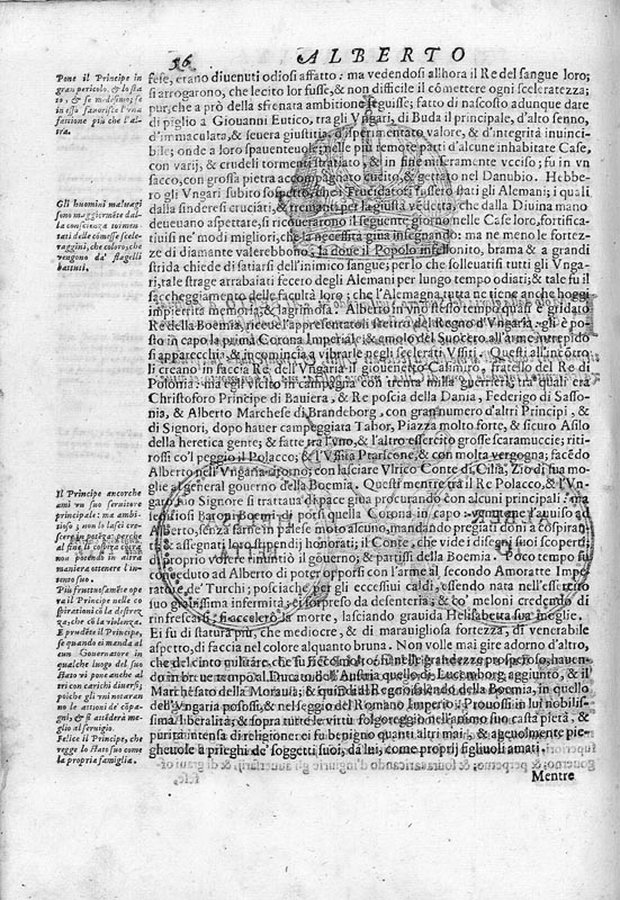 56
ALBERTO
Pone il Principe in
gran pericolo, & lo sta
to, & se medesimo; se
in esso fauorisce l'vna
fattione più che l'al-
tra.
Gli huomini maluagi
sono maggiormẽte dal-
la conscienza tormen-
tati delle cõmesse scele-
raggini, che coloro, che
vengono da' flagelli
battuti.
Il Principe ancorche
ami vn suo seruitore
principale: ma ambi-
tioso; non lo lasci cre-
scere in potẽza; perche
al fine si
non potendo in altra
maniera ottenere l'in-
tento suo.
Più fruttuosamẽte ope
ra il Principe nelle co
spirationi cõ la destrez
za, che cõ la violenza.
E prudẽte il Principe,
se quando ei manda al
cun Gouernatore in
qualche luogo del suo
stato vi pone anche al
tri con carichi diuersi;
poiche gli vni notaran
no le attioni de' cõpa-
gni, & si accẽderà me-
glio al seruigio.
Felice il Principe, che
regge lo stato suo come
la propria famiglia.
fese, erano diuenuti odiosi affatto: ma vedendosi all'hora il Re del sangue loro;
si arrogarono, che lecito lor fusse, & non difficile il cõmettere ogni sceleratezza;
pur, che a prò della sfrenata ambitione seguisse; fatto di nascosto adunque dare
di piglio a Giouanni Eutico, tra gli Vngari, di Buda il principale, d'alto senno,
d'immaculata, & seuera giustitia, d'sperimentato valore, & d'integrità inuinci-
bile; onde a loro spauenteuole; nelle più remote parti d'alcune inhabitate Case,
con varij, & crudeli tormenti stratiato, & in fine miseramente vcciso; fu in vn
sacco, con grossa pietra accompagnato cucito, & gettato nel Danubio. Hebbe-
ro gli Vngari subito sospetto, che i Trucidatori fussero stati gli Alemani; i quali
dalla sinderesi cruciati, & tremanti per la giusta vẽdetta, che dalla Diuina mano
doueuano aspettare, si ricouerarono il seguente giorno nelle Case loro, fortifica-
tiuisi ne' modi migliori, che la necessità gina insegnando: ma ne meno le fortez-
ze di diamante valerebbono, la doue il Popolo infellonito, brama & a grandi
strida chiede di satiarsi dell'inimico sangue; per lo che solleuatisi tutti gli Vnga-
ri, tale strage arrabaiati fecero degli Alemani per lungo tempo odiati; & tale fu il
saccheggiamento delle facultà loro; che l'Alemagna tutta ne tiene anche hoggi
impietrita memoria, & lagrimosa. Alberto in vno stesso tempo quasi è gridato
Re della Boemia, riceue l'appresentatoli scettro del Regno d'Vngaria, gli è po-
sto in capo la prima Corona Imperiale; & emolo del Suocero all'arme intrepido
si apparecchia, & incomincia a vibrarle negli scelerati Vssiti. Questi all'incõtro
li creano in faccia Re dell'Vngaria il giouenetto Casimiro, fratello del Re di
Polonia: ma egli vscito in campagna con trenta milla guerrieri, tra quali era
Christoforo Principe di Bauiera, & Re poscia della Dania, Federigo di Sasso-
nia, & Alberto Marchese di Brandeborg, con gran numero d'altri Principi, &
di Signori, dopo hauer campeggiata Tabor, Piazza molto forte, & sicuro Asilo
della heretica gente; & fatte tra l'vno, & l'altro essercito grosse scaramuccie; riti-
rossi co'l peggio il Polacco; & l'Vssita Ptarscone, & con molta vergogna; facẽdo
Alberto nell'Vngaria ritorno; con lasciare Vlrico Conte di Cilia, Zio di sua mo-
glie al general gouerno della Boemia. Questi mentre tra il Re Polacco, & l'Vn-
garo suo Signore si trattaua di pace giua procurando con alcuni principali: ma
seditiosi Baroni Boemi di porsi quella Corona in capo: venutone l'auuiso ad
Alberto, senza farne in palese moto alcuno, mandando pregiati doni a cospiran-
ti, & assegnati loro stipendj honorati; il Conte, che vide i disegni suoi scoperti,
di proprio volere rinuntiò il gouerno; & partissi della Boemia. Poco tempo fu
conceduto ad Alberto di poter opporsi con l'arme al secondo Amoratte Impe
ratore de' Turchi; posciache per gli eccessiui caldi, essendo nata nell'essercito
suo grauissima infermità; ei sorpreso da desenteria; & co' meloni credendo di
rinfrescarsi, si accelerò la morte, lasciando grauida Helisabetta sua moglie.
Ei fu di statura più, che mediocre, & di marauigliosa fortezza, di venerabile
aspetto, di faccia nel colore alquanto bruna. Non volle mai gire adorno d'altro,
che del cinto militare, che fu seco molto humil nelle grandezze prosperoso, hauen-
do in breue tempo al Ducato dell'Austria quello di Lucemborg aggiunto, & il
Marchesato della Morauia; & quindi al Regno salendo della Boemia, in quello
dell'Vngaria posossi, & nel seggio del Romano Imperio. Prouossi in lui nobilis-
sima liberalità; & sopra tutte le virtù folgoreggiò nell'animo suo casta pietà, &
purità intensa di religione: ei fu benigno quanti altri mai, & ageuolmente pie-
gheuole a prieghi de' soggetti suoi, da lui, come proprij figliuoli amati.
Mentre